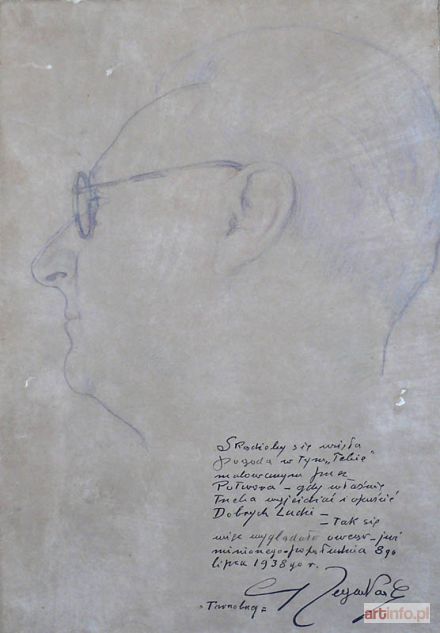 Skądżeby się wzięła
pogoda w tym „Łebie"
malowanym przez
Potwora – gdy właśnie
trzeba wyjeżdżać i opuścić
Dobrych Ludzi –
– Tak się
więc wyglądało owego – już
minionego – popołudnia 8go
lipca 1938go r.
"Tarnobrzeg"
artinfo.pl